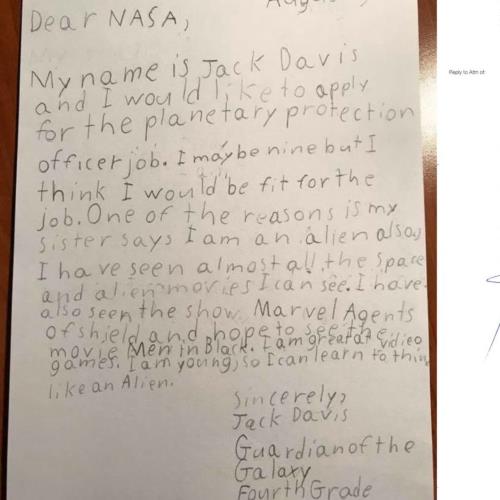 Dear NASA,
My name is Jack Davis
and I would like to apply
for the planetary protection
officer job. I maybe nine but I
think I would be fit for the
job. One of the reasons is my
sister says I am an alien also,
I have seen almost all the space
and alien movies I can see. I have
also seen the show Marvel Agents
of shield and hope to see the
movie Men in Black. I am great at vidieo
games. I am young, so I can learn to thin
like an Alien.
Sincerely,
Jack Davis
Guardian of the
Galaxy
Fourth Grade
Reply to Attn of: